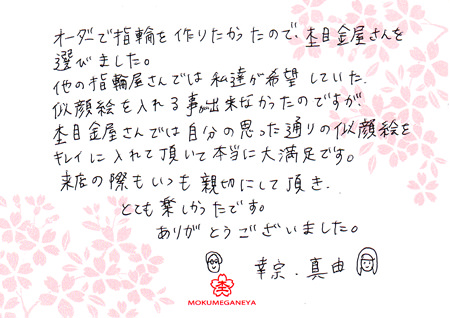 オーダーで指輪を作りたかったので、杢目金屋さんを
選びました。
他の指輪屋さんでは私達が希望していた
似顔絵を入れる事が出来なかったのですが、
杢目金屋さんでは自分の思った通りの似顔絵を
キレイに入れて頂いて本当に大満足です。
来店の際もいつも親切にして頂き、
とても楽しかったです。
ありがとうございました。
幸宗、真由
木
MOKUMEGANEYA